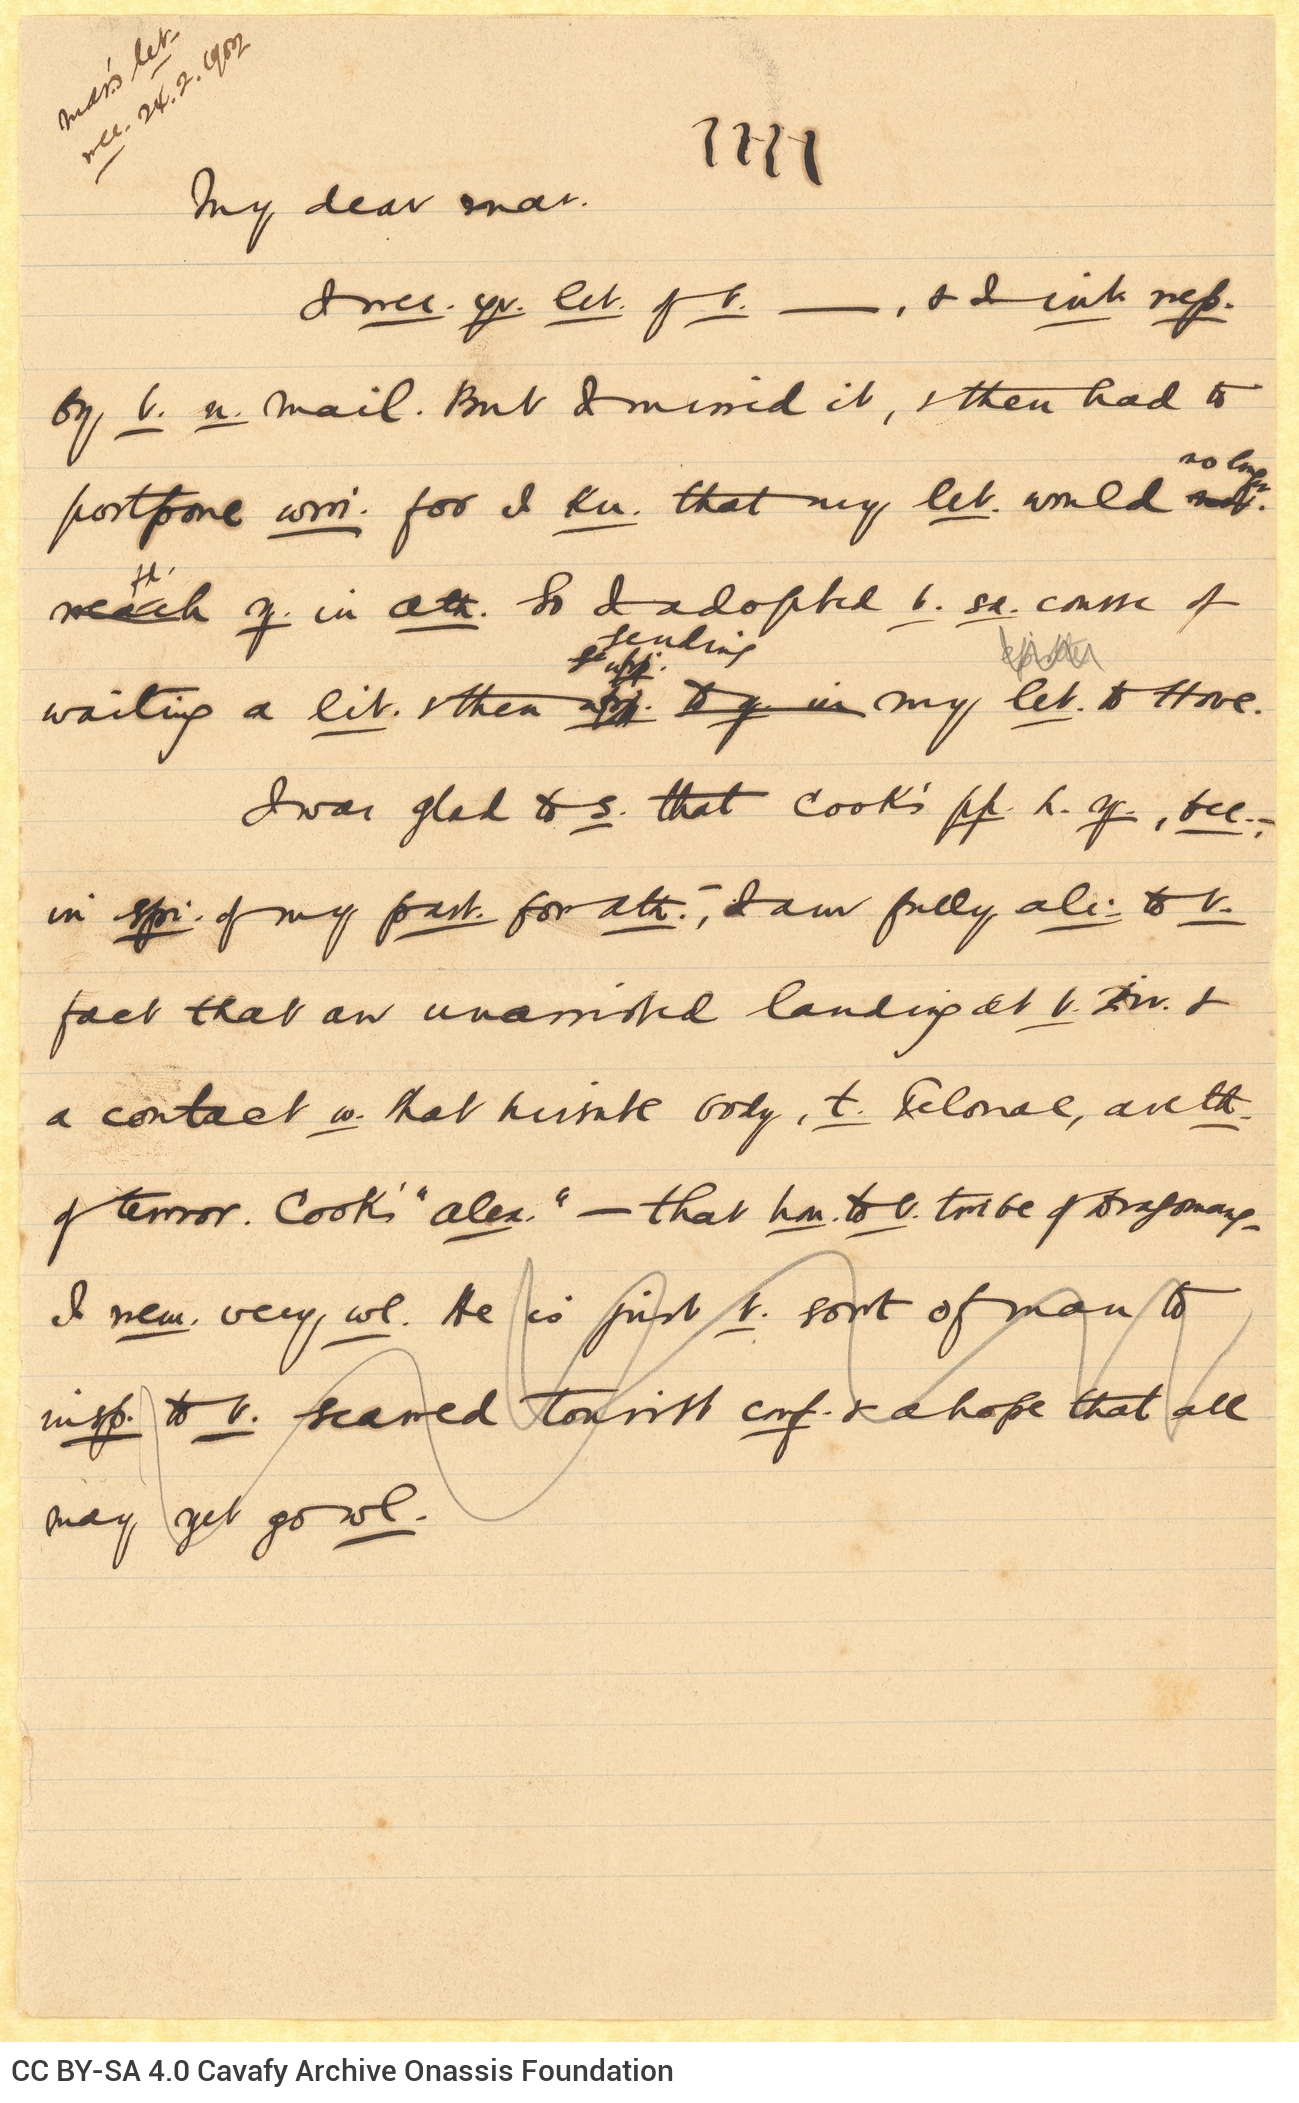 Mar's let.
rec. 24.2.1902
My dear Mar.
I rec. yr. let. of t. —, & I int. rep.
by t. n. mail. But I missed it, & then had to
no longer
postpone wri. for I kn. that my let. would not.
fd.
reach y. in Ath. So I adopted t. sa. course of
sending
supp.
waiting a lit. & then to y. in my let. to Hove.
I was glad to s. that Cook's pp. h. y., bec.,
in spi. of my part. for Ath.—, I am fully ali. to t.
fact that an unassisted landing at t. Pir. &
a contact w. that hirsute body, t. Telonae, are th.
of terror. Cook's "Alex." — that hon. to t. tribe of Dragomans—
I rem. very wl. He is just t. sort of man to
insp. to t. scared tourist conf. & a hope that all
may yet go wl.
CC BY-SA 4.0 Cavafy Archive Onassis Foundation